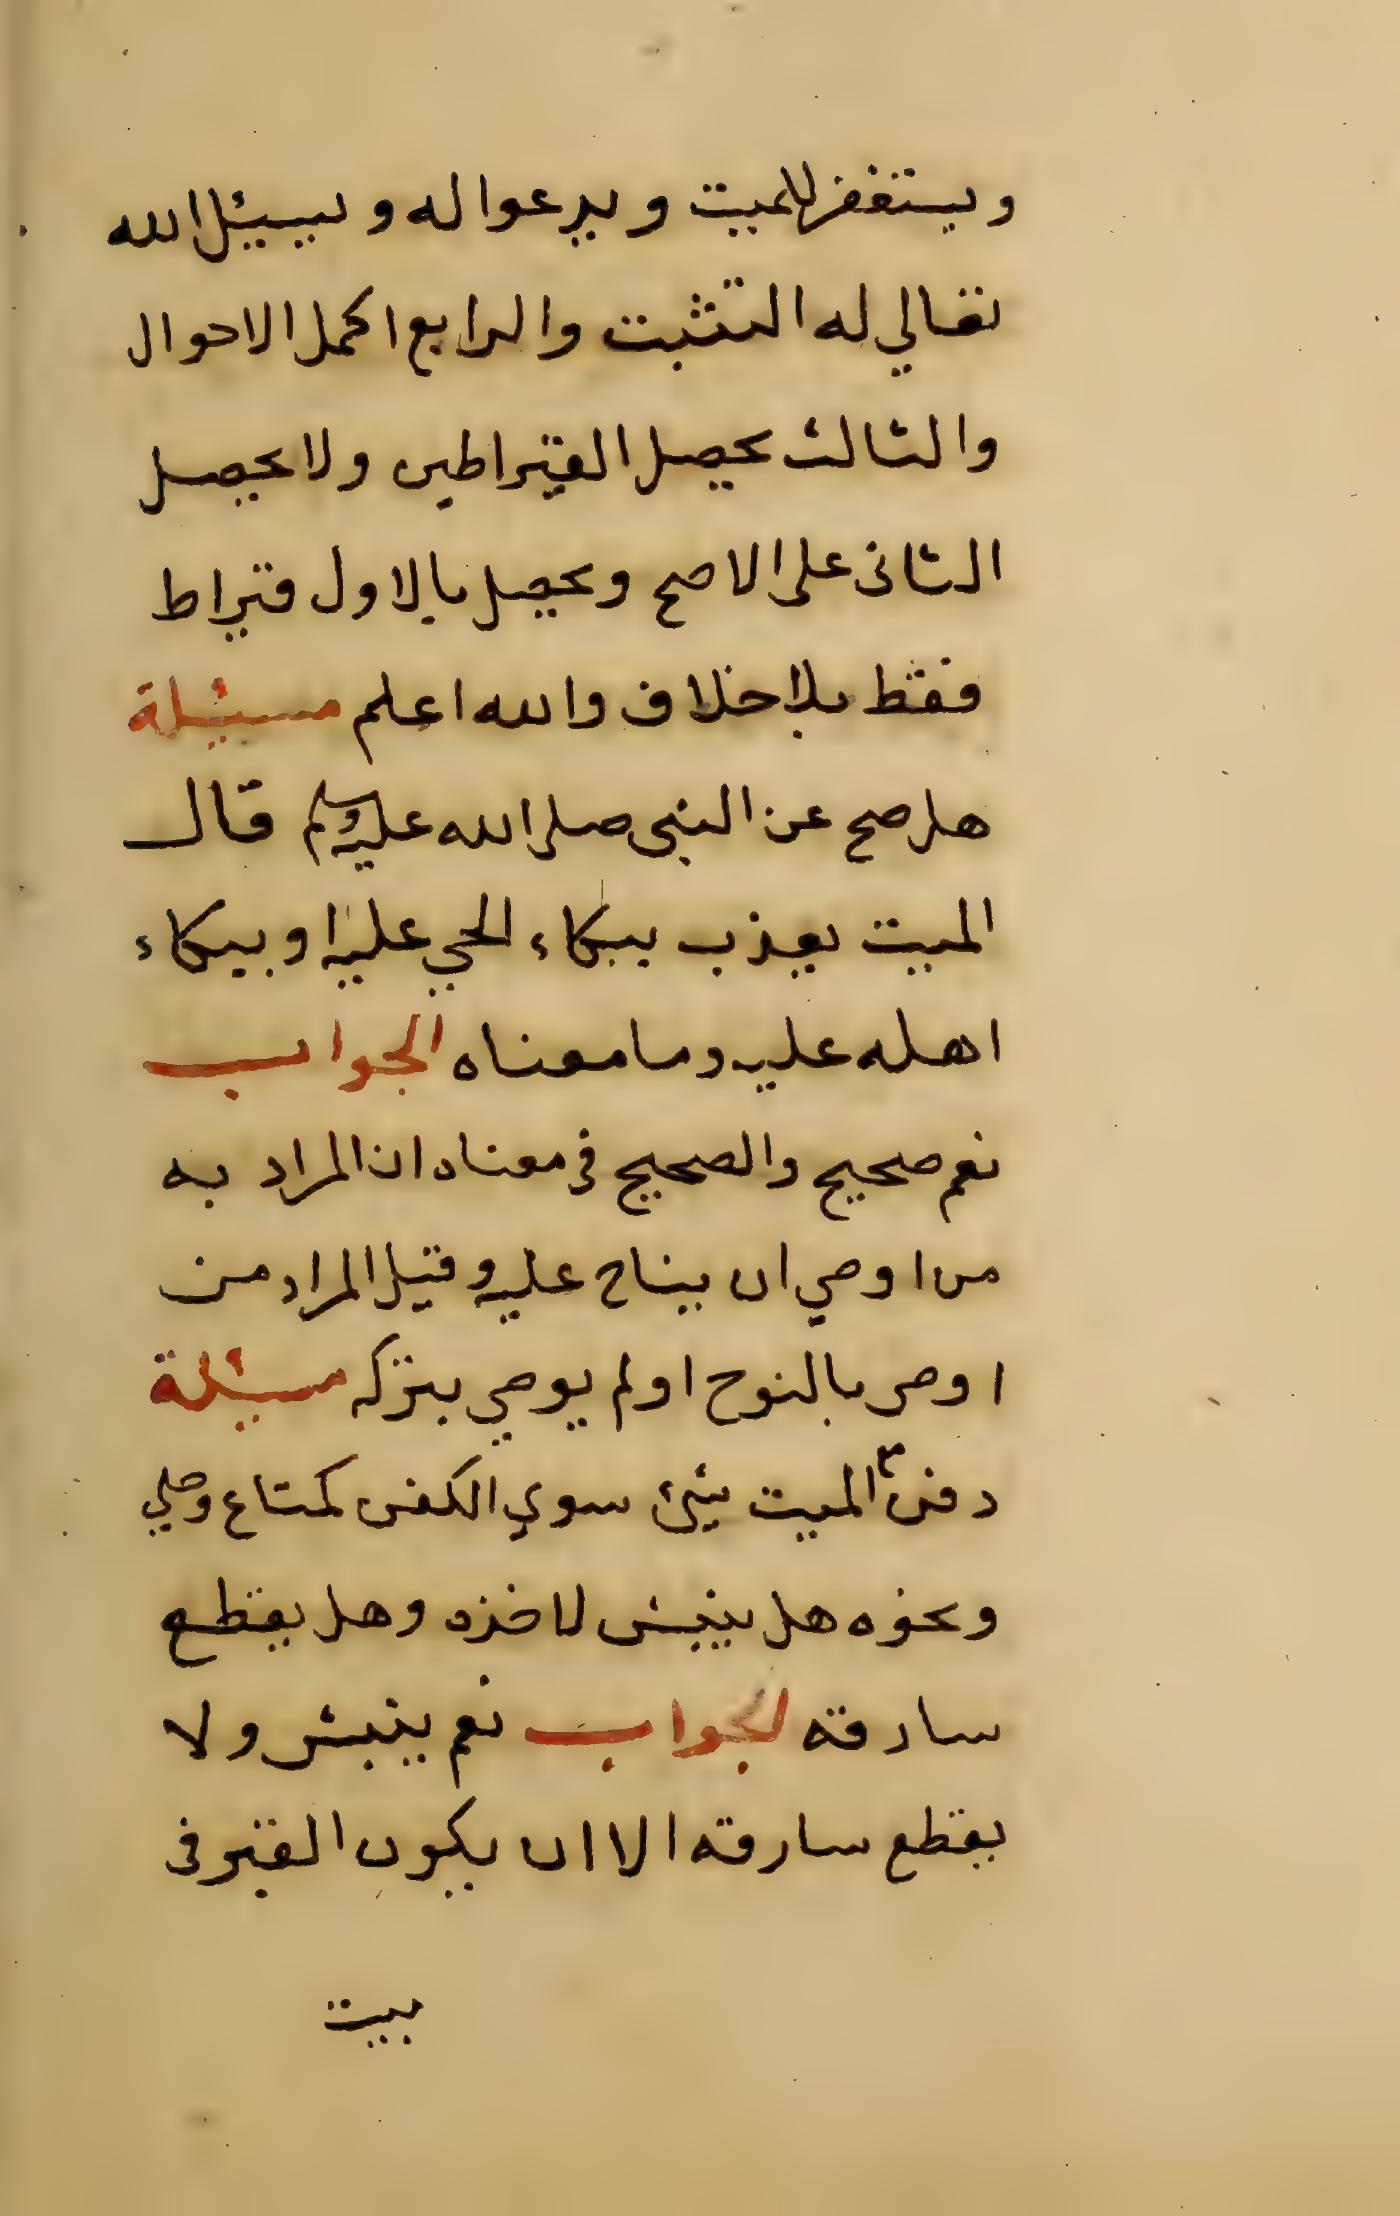 ويستغفر للميت ويدعوا له ويسيئل الله
تعالي له التثبت والرابع اكمل الاحوال
والثالث يحصل القيراطين ولا يحصل
الثانى على الاصح ويحصل بالاول قيراط
فقط بلا خلاف والله اعلم مسيئلة
هل صح عن النبى صلى الله عليه وسلم قال
الميت يعذب ببكاء الحي عليه او ببكاء
اهله عليه وما معناه الجواب
نعم صحيح والصحيح فى معناه ان المراد به
من اوصي ان يناح عليه وقيل المراد من
اوصى بالنوح اولم يوصي بتركه مسيئلة
دفن مع الميت شيئ سوي الكفن كمتاع وحلي
ونحوه هل ينبش لاخذه وهل يقطع
سارقه لجواب نعم ينبش ولا
يقطع سارقه الا ان يكون القبر فى
بيت